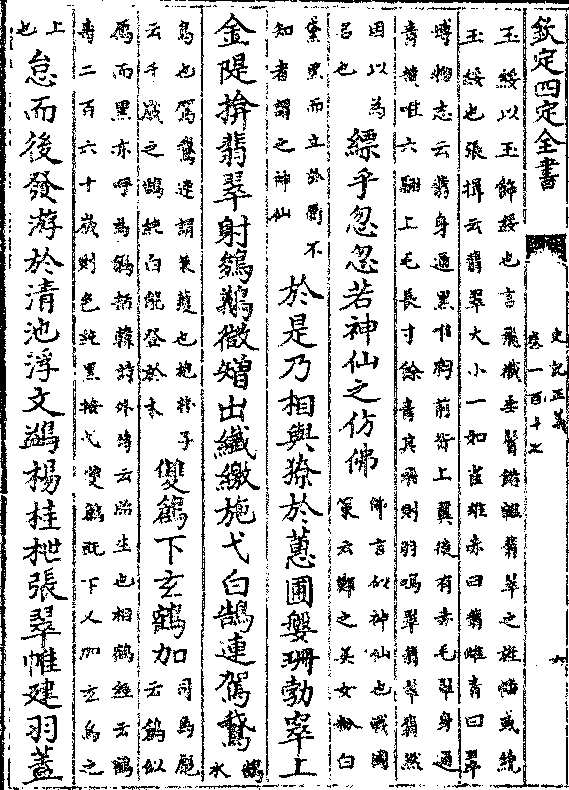 欽定四庫全書
史記正義
卷一百十七
六
玉綏以玉飾綏也言飛襳垂髾錯雜翡翠之旌幡或繞
玉綏也張揖云翡翠大小一如雀雄赤曰翡雌青曰翠
博物志云翡身通黑惟胸前背上翼後有赤毛翠身通
青黃唯六翮上毛長寸餘青其飛則羽鳴翠翡翠翡然
因以為
名也
縹乎忽忽若神仙之仿佛
佛言似神仙也戰國
策云鄭之美女粉白
黛黑而立於衢不
知者謂之神仙
於是乃相與獠於蕙圃媻珊勃窣上
金隄揜翡翠射鵕鸃微矰出纖繳施弋白鵠連駕鵞
鵠
水
鳥也鴐鵞連謂兼獲也抱朴子
云千歲之鵠純白能登於木
雙鶬下玄鶴加
司馬彪
云鶬似
鴈而黑亦呼為鶬括韓詩外傳云胎生也相鶴經云鶴
壽二百六十歲則色純黑按弋雙鶬既下又加玄鳥之
上
也
怠而後發游於清池浮文鷁楊桂枻張翠帷建羽蓋